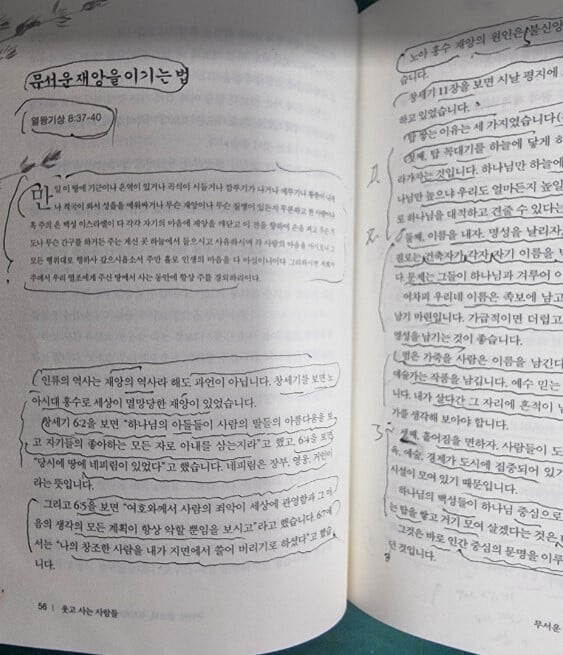 무서운 재앙을 이기는 법
열왕기상 8:37-40
만
일 이 땅에 기근이나 온역이 있거나 곡식이 시들거나 깜부기가 나거나 메뚜기나 황충이 나거
나 적국이 와서 성읍을 에워싸거나 무슨 재앙이나 무슨 질병이 있든지 무론하고 한 사람이나
혹 주의 온 백성 이스라엘이 다 각각 자기의 마음에 재앙을 깨닫고 이 전을 향하여 손을 펴고 무슨 기
도나 무슨 간구를 하거든 주는 계신 곳 하늘에서 들으시고 사유하시며 각 사람의 마음을 아시오니 그
모든 행위대로 행하사 갚으시옵소서 주만 홀로 인생의 마음을 다 아심이니이다 그리하시면 저희가
주께서 우리 열조에게 주신 땅에서 사는 동안에 항상 주를 경외하리이다
인류의 역사는 재앙의 역사라 해도 과언이 아닙니다. 창세기를 보면 노
아시대 홍수로 세상이 멸망당한 재앙이 있었습니다.
창세기 6:2을 보면 "하나님의 아들들이 사람의 딸들의 아름다움을 보
고 자기들의 좋아하는 모든 자로 아내를 삼는지라"고 했고, 6:4을 보면
"당시에 땅에 네피림이 있었다"고 했습니다. 네피림은 장부, 영웅, 거인이
라는 뜻입니다.
그리고 6:5을 보면 "여호와께서 사람의 죄악이 세상에 관영함과 그 마
음의 생각의 모든 계획이 항상 악할 뿐임을 보시고"라고 했습니다. 6:7에
서는 "나의 창조한 사람을 내가 지면에서 쓸어 버리기로 하셨다"고 했습
니다.
56 | 웃고 사는 사람들
노아 홍수 재앙의 원인은 불신앙
습니다.
창세기 11장을 보면 시날 평지에
하고 있었습니다.
탑 쌓는 이유는 세 가지였습니다
1.
첫째, 탑 꼭대기를 하늘에 닿게 하
라가자는 것입니다. 하나님만 하늘에
나님만 높으냐 우리도 얼마든지 높일
로 하나님을 대적하고 견줄 수 있다는
2.
둘째, 이름을 내자. 명성을 날리자.
질로는 건축자가 각자 자기 이름을
다 문제는 그들이 하나님과 겨루어 이
어차피 우리네 이름은 족보에 남고
남기 마련입니다. 가급적이면 더럽고
명성을 남기는 것이 좋습니다.
범은 가죽을 사람은 이름을 남긴다
예술가는 작품을 남깁니다. 예수 믿는
니다. 내가 살다간 그 자리에 흔적이 남
가를 생각해 보아야 합니다.
3.
셋째, 흩어짐을 면하자. 사람들이 도
육, 예술, 경제가 도시에 집중되어 있기
시설이 모여 있기 때문입니다.
하나님의 백성들이 하나님 중심으로
는 탑을 쌓고 거기 모여 살겠다는 것은
그것은 바로 인간 중심의 문명을 이루
던 것입니다.
무서운